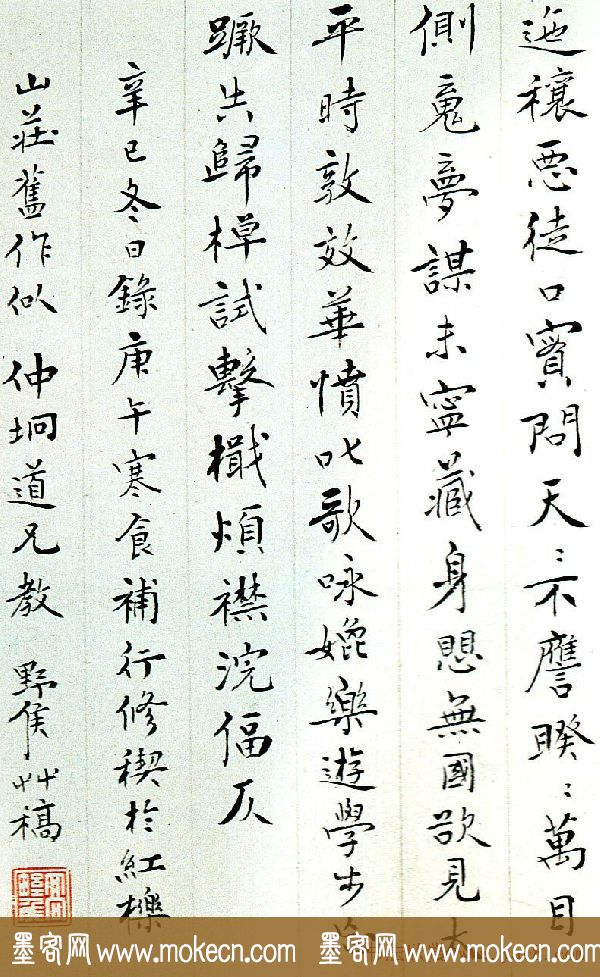 迤穰惡徒口實問天天不譍睽睽萬目
側鬼夢謀未寧藏身愳無國欲見太
平時敦效華憤叱歌咏媲樂遊學步
蹶共歸棹試擊檝煩襟浣偪仄
辛巳冬日錄庚午寒食補行修稧於紅櫟
山莊舊作似仲坰道兄教 野侯艸稿
墨客网 www.mokecn.com 墨客网 www.mokecn.com